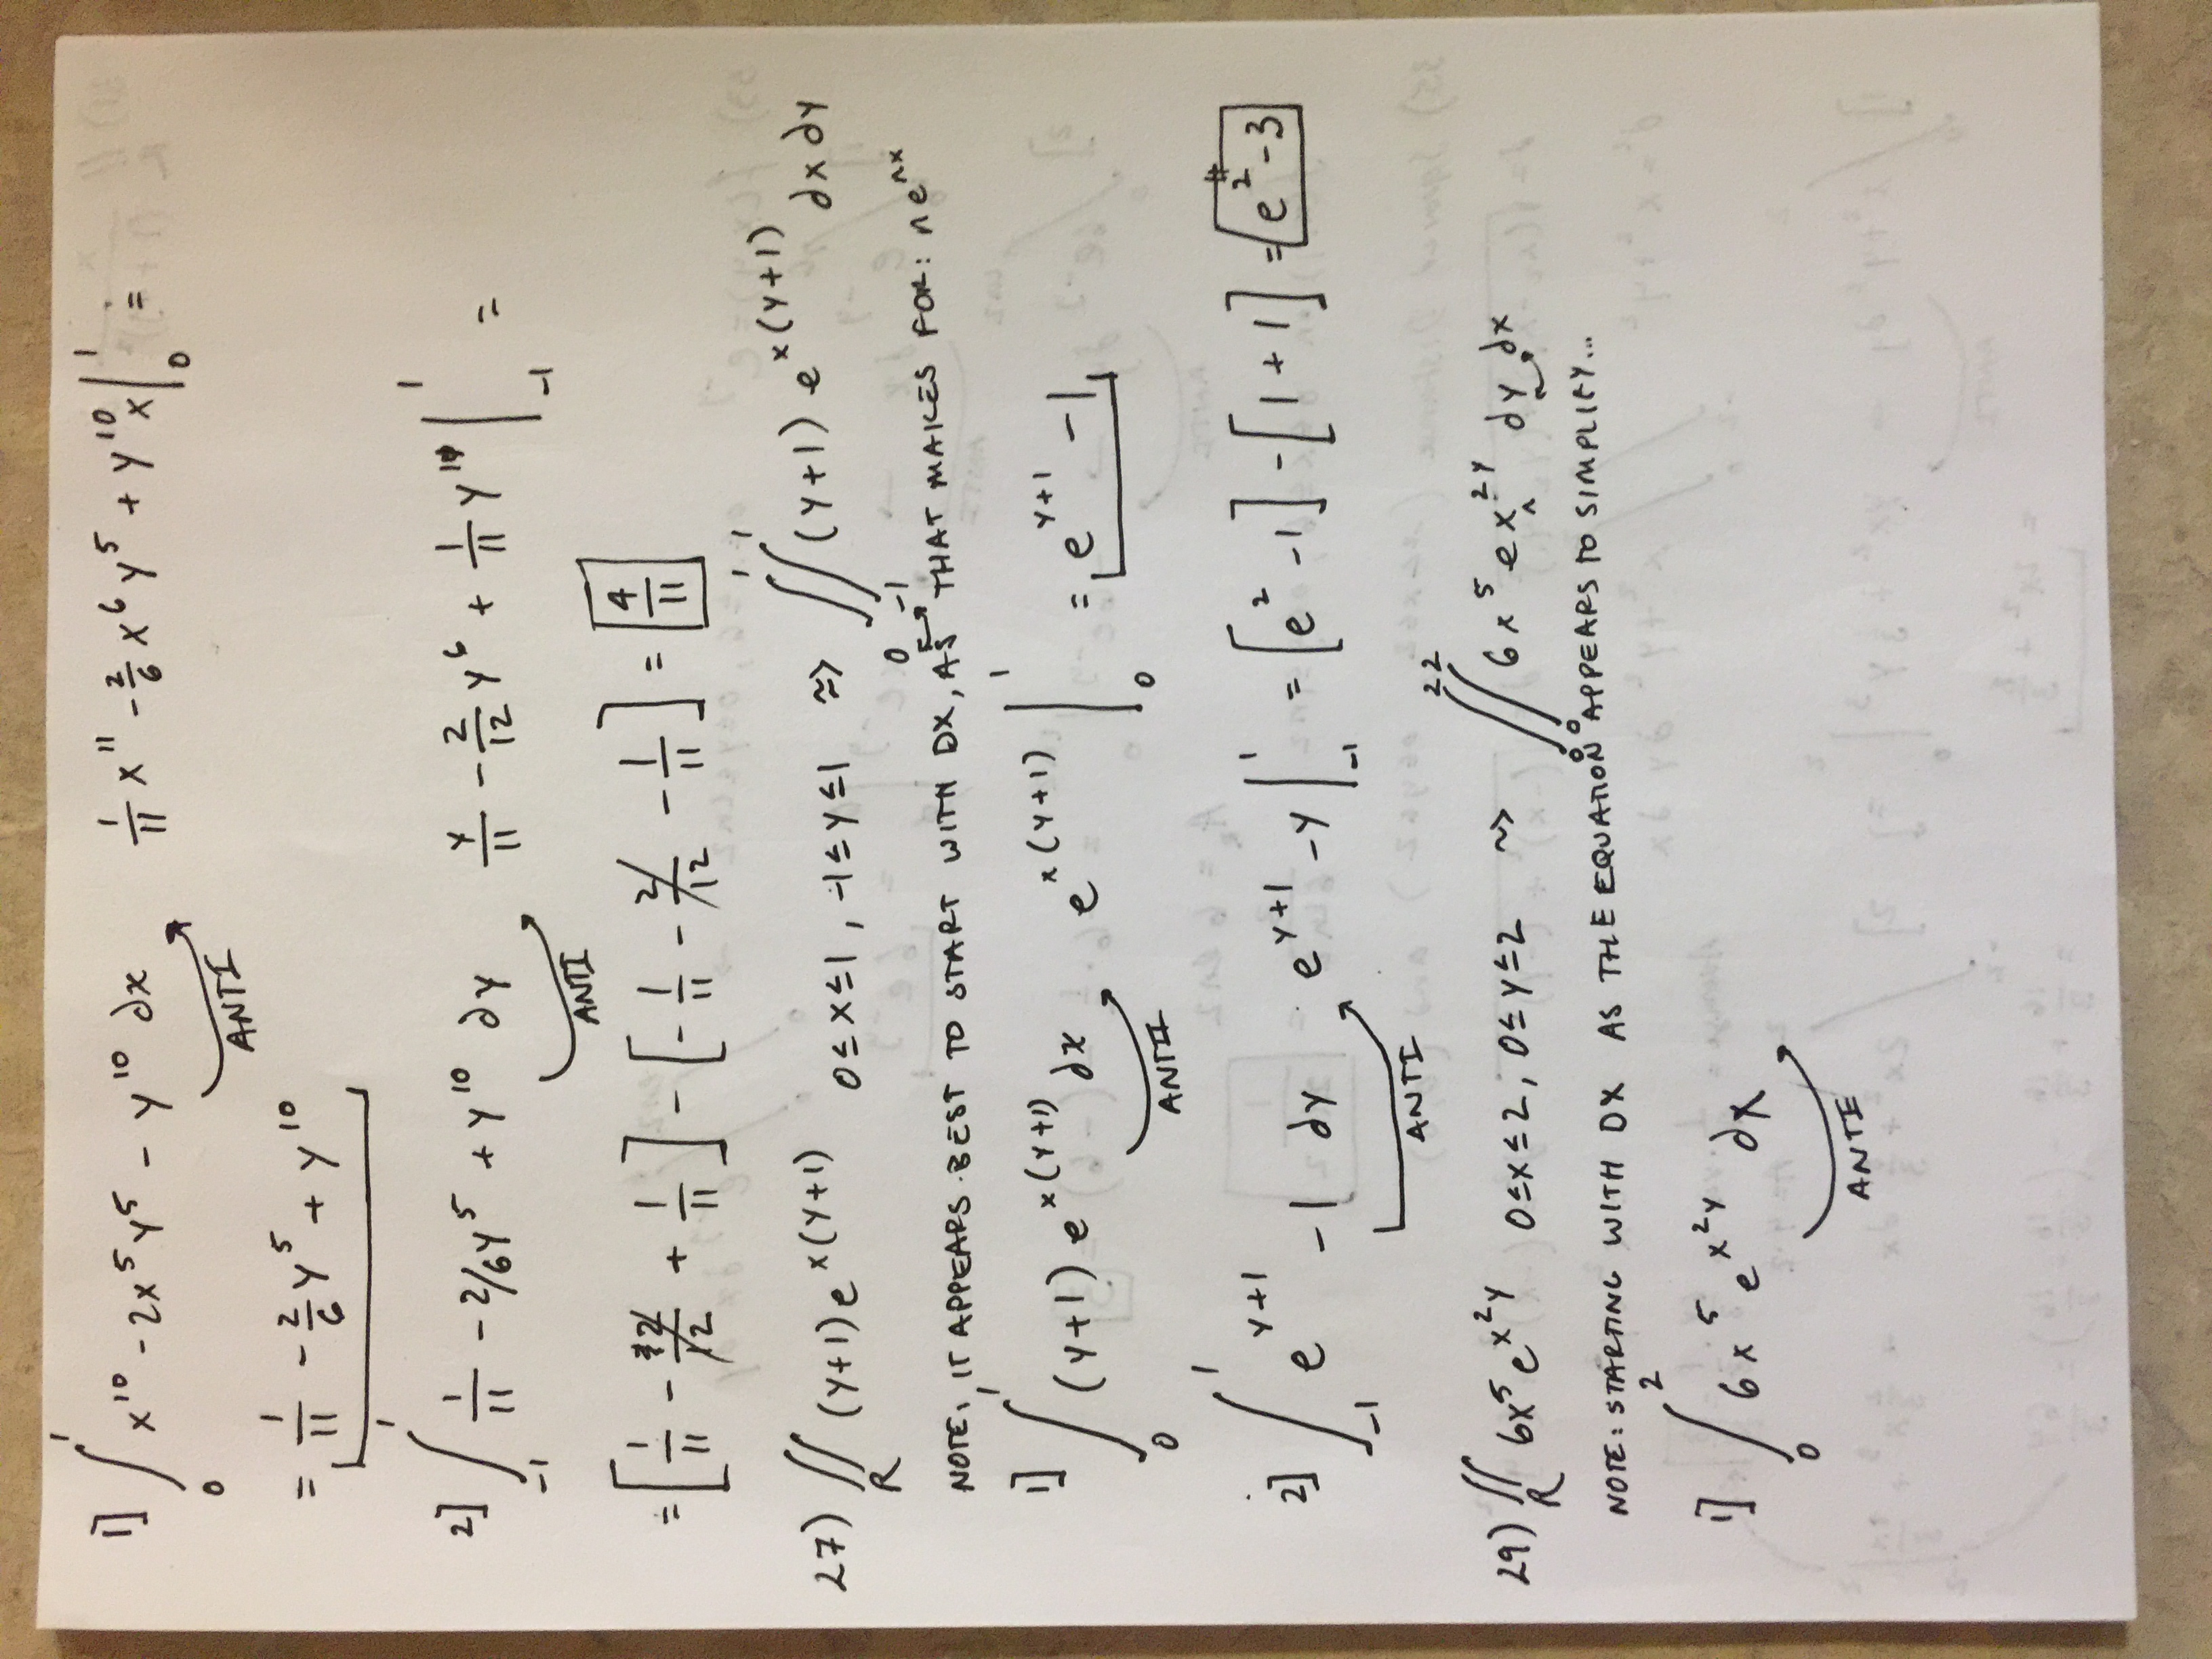 1] ∫₀¹ x¹⁰ - 2x⁵y⁵ - y¹⁰ dx ANTI 1/11 x¹¹ - 2/6 x⁶y⁵ + y¹⁰x |₀¹ =
= 1/11 - 2/6 y⁵ + y¹⁰
2] ∫₋₁¹ 1/11 - 2/6y⁵ + y¹⁰ dy ANTI y/11 - 2/12 y⁶ + 1/11 y¹¹ |₋₁¹ =
= [1/11 - 2/12 + 1/11] - [-1/11 - 2/12 - 1/11] = 4/11
27) ∬_R (y+1)e^(x(y+1)) 0≤x≤1, -1≤y≤1 ⇝ ∫₀¹∫₋₁¹ (y+1) e^(x(y+1)) dx dy
NOTE: IT APPEARS BEST TO START WITH DX, AS THAT MAKES FOR: ne^(nx)
1] ∫₀¹ (y+1) e^(x(y+1)) dx ANTI e^(x(y+1)) |₀¹ = e^(y+1) - 1
2] ∫₋₁¹ e^(y+1) - 1 dy ANTI e^(y+1) - y |₋₁¹ = [e² - 1] - [1 + 1] = e² - 3
29) ∬_R 6x⁵e^(x²y) 0≤x≤2, 0≤y≤2 ⇝ ∫₀²∫₀² 6x⁵ e^(x^(2y)) dy dx
NOTE: STARTING WITH DX AS THE EQUATION APPEARS TO SIMPLIFY...
1] ∫₀² 6x⁵ e^(x²y) dx ANTI